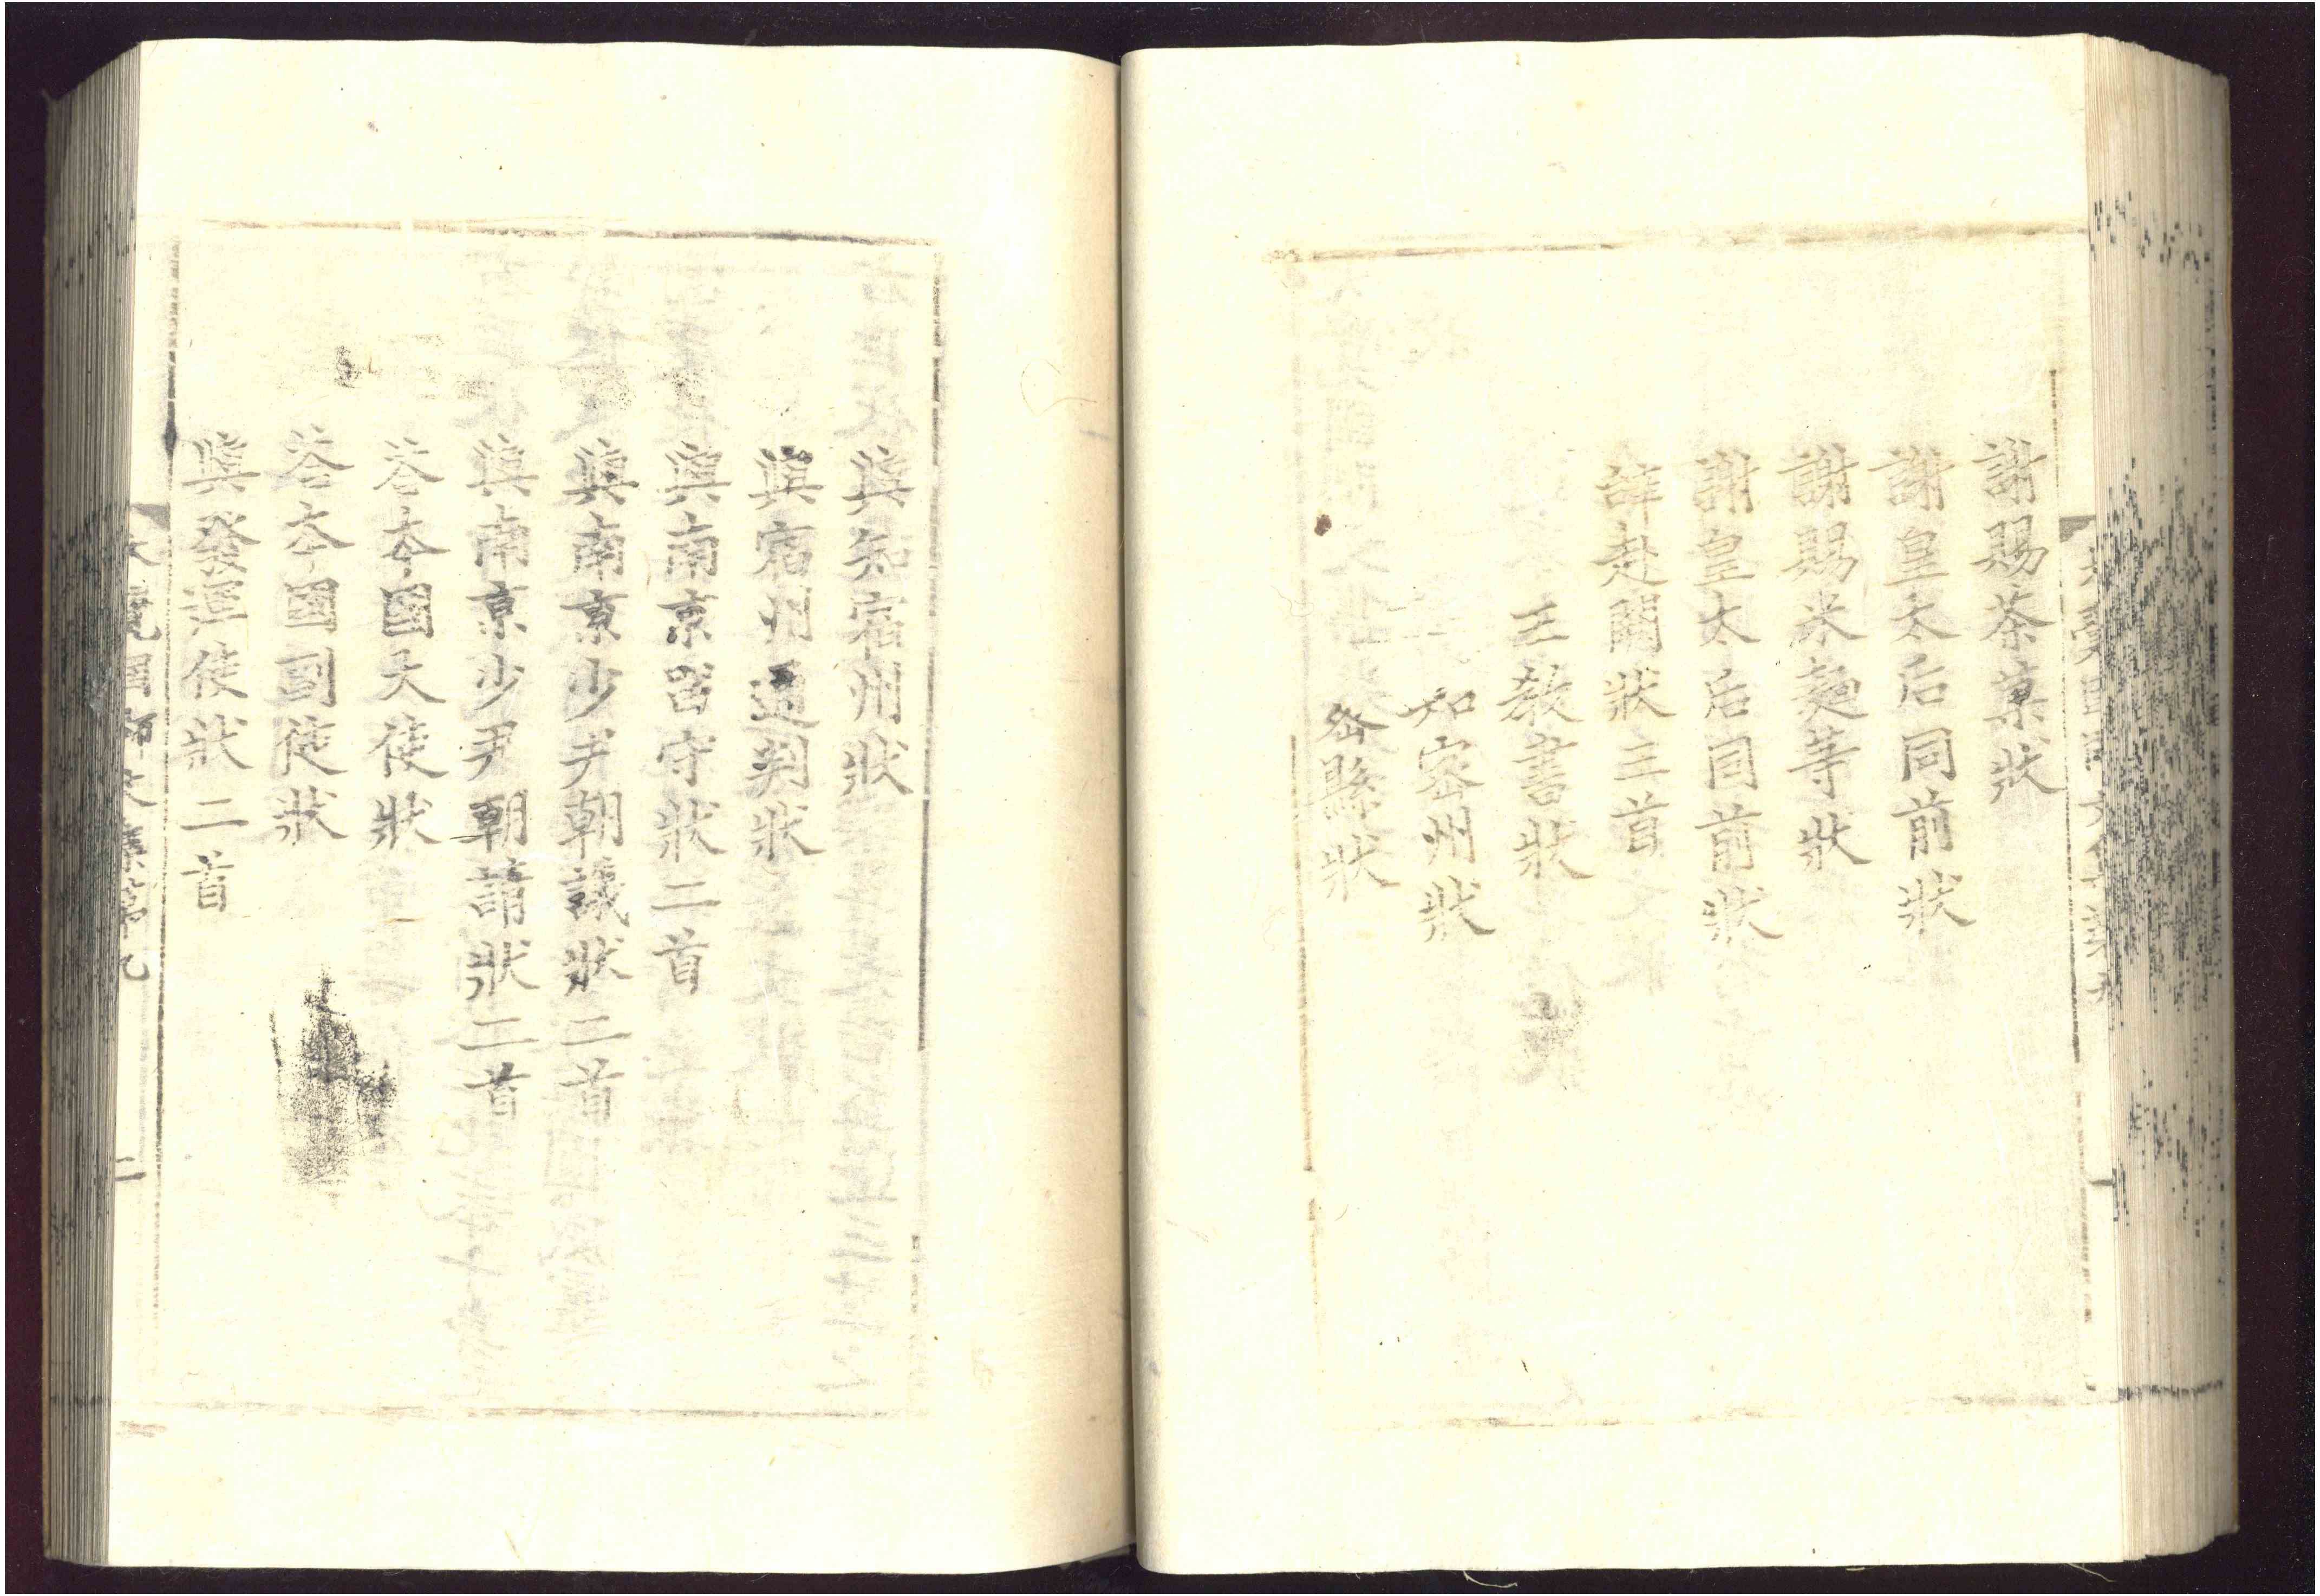 謝賜茶菓狀
謝皇太后同前狀
謝賜米麵等狀
謝皇太后同前狀
辭赴闕狀三首
王敎書狀
知密州狀
縣狀
與知宿州狀
與宿州通判狀
與南京留守狀二首
與南京少尹朝議狀二首
與南京少尹朝請狀二首
答本國大使狀
答本國國使狀
與發運使狀二首
大覺國師文集第九
二